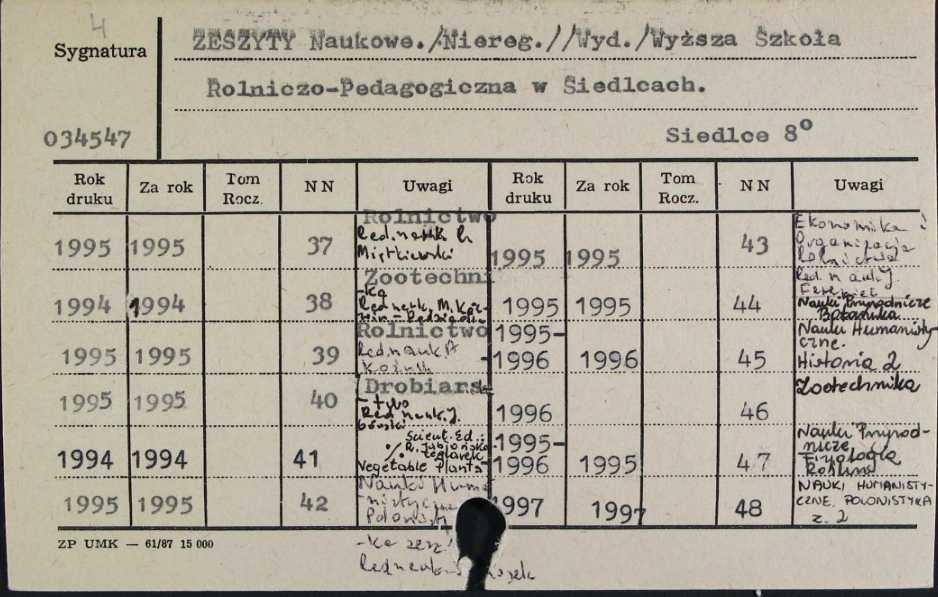 4
Sygnatura
ZESZYTY Naukowe./Niereg.//Wyd./Wyższa Szkoła
Rolniczo-Pedagogiczna w Siedlcach.
034547
Siedlce 8°
Rok druku Za rok Tom Rocz. NN Uwagi Rok druku Za rok Tom Rocz. NN Uwagi
1995 1995 37 Rolnictwo
Red. nauk
1995 1995 43 Ekonomika i
Organizacja
Rolnictwa
Red. nauk J.
1994 1994 38 Zootechni
-ka
Red. nauk. M.
1995 1995 44 Nauki Przyrodnicze
Botanika
1995 1995 39 Rolnictwo
Red. nauk A
1995-
1996 1996 45 Nauki Humanisty-
czne.
Historia 2
1995 1995 40 Drobiars-
-two
Red. nauk. J.
1996 46 Zootechnika
1994 1994 41 Scient. Ed.:
Vegetable Plants
1995-
1996 1995 47 Nauki Przyrod-
nicze
Fizjologia
Roślin
1995 1995 42 Nauki Huma
-nistyczne
1997 1997 48 NAUKI HUMANISTY-
CZNE. POLONISTYKA
z. 2
ZP UMK — 61/87 15 000
-ka